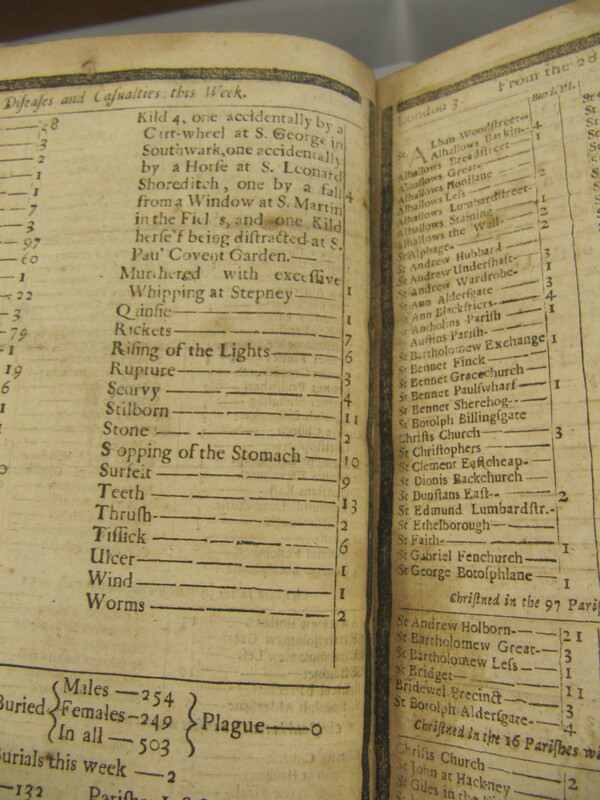 Diseases and Casualties this Week.
58
3
2
1
1
7
3
97
60
1
22
3
79
1
19
6
1
1
0
Kild 4, one accidentally by a
Cart-wheel at S. George in
Southwark, one accidentally
by a Horse at S. Leonard
Shoreditch, one by a fall 4
from a Window at S. Martin
in the Fiel s, and one Kild
herse'f being distracted at S.
Pau' Covent Garden.—
Murthered with excessive
Whipping at Stepney— 1
Quinsie— 1
Rickets— 7
Rising of the Lights— 6
Rupture— 3
Scurvy— 4
Stilborn— 11
Stone— 2
S opping of the Stomach— 10
Surfeit— 9
Teeth— 13
Thrush— 2
Tissick— 6
Ulcer— 1
Wind— 1
Worms— 2
Buried
Males—254
Females—249
In all—503
Plague—0
Burials this week—2
—132
From the 28
London 3
Buri. Pl.
St Alban Woodstreet—
Alhallows Barkin— 4
Alhallows Breadstreet— 1
Alhallows Great—
Alhallows Honilane—
Alhallows Less— 2
Alhallows Lumbardstreet— 1
Alhallows Staining— 2
Alhallows the Wall— 2
St Alphage—
St Andrew Hubbard—
St Andrew Undershaft— 3
St Andrew Wardrobe— 1
St Ann Aldersgate— 3
St Ann Blackfriers— 4
St Antholins Parish— 1
St Austins Parish—
St Bartholomew Exchange 1
St Bennet Finck—
St Bennet Gracechurch—
St Bennet Paulswharf— 1
St Bennet Sherehog—
St Botolph Billingsgate
Christs Church— 3
St Christophers—
St Clement Eastcheap—
St Dionis Backchurch—
St Dunstans East— 2
St Edmund Lumbardstr.—
St Ethelborough—
St Faith— 1
St Gabriel Fenchurch—
St George Botolphlane— 1
Christned in the 97 Paris
St Andrew Holborn— 21
St Bartholomew Great— 3
St Bartholomew Less— 1
St Bridget— 11
Bridewel Precinct— 3
St Botolph Aldersgate— 4
Christned in the 16 Parishes wi
Christs Church— 2
St John at Hackney—
St Giles in the